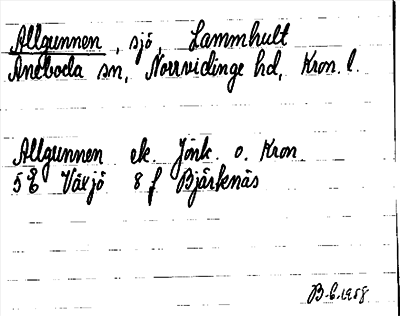 Allgunnen, sjö, Lammhult
Aneboda sn, Norrvidinge hd, Kron. l.
Allgunnen ek. Jönk. o. Kron
5 E Växjö 8 f Bjärknäs
B-6.1958